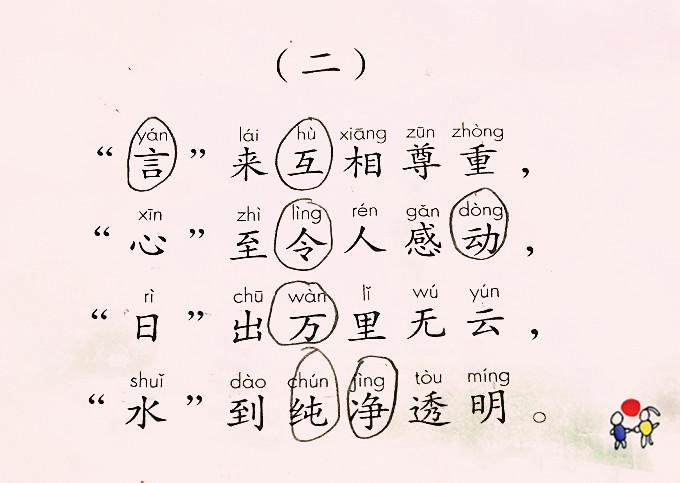 （二）
yán lái hù xiāng zūn zhòng
“言”来互相尊重，
xīn zhì lìng rén gǎn dòng
“心”至令人感动，
rì chū wàn lǐ wú yún
“日”出万里无云，
shuǐ dào chún jìng tòu míng
“水”到纯净透明。